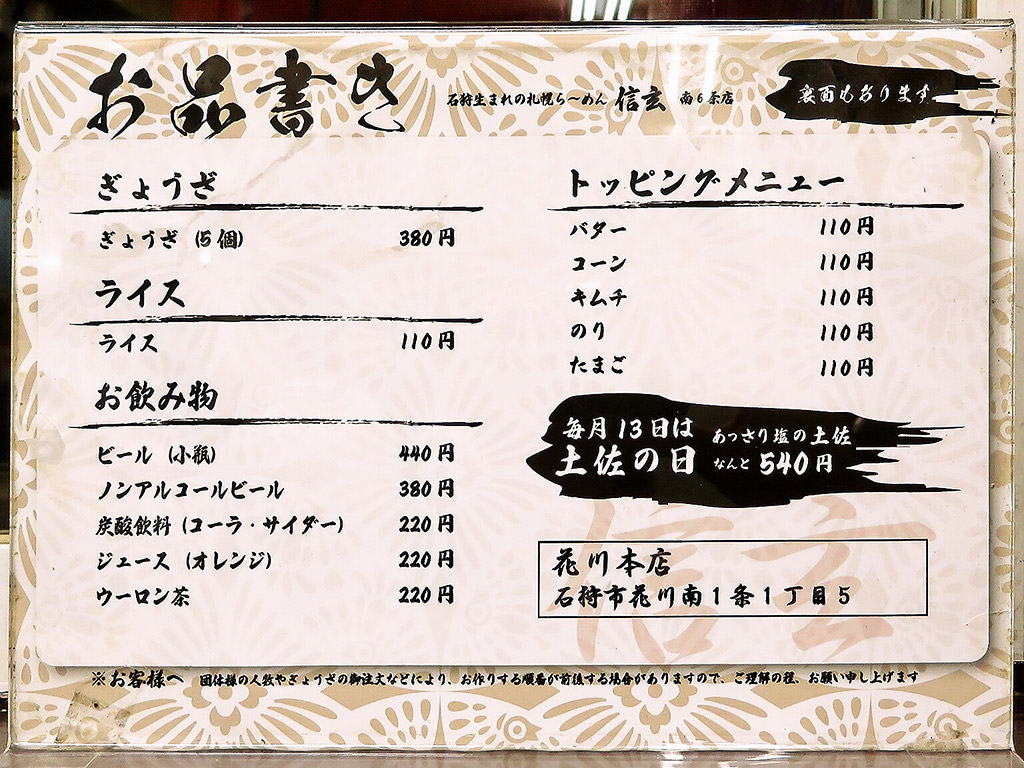 お品書き
石狩生まれの札幌ら〜めん 信玄 南6条店
裏面もあります
ぎょうざ
ぎょうざ (5個) 380円
ライス
ライス 110円
お飲み物
ビール (小瓶) 440円
ノンアルコールビール 380円
炭酸飲料 (コーラ・サイダー) 220円
ジュース (オレンジ) 220円
ウーロン茶 220円
トッピングメニュー
バター 110円
コーン 110円
キムチ 110円
のり 110円
たまご 110円
毎月13日は
土佐の日
あっさり塩の土佐
なんと 540円
信玄
花川本店
石狩市花川南1条1丁目5
※お客様へ 団体様の人数やぎょうざの御注文などにより、お作りする順番が前後する場合がありますので、ご理解の程、お願い申し上げます